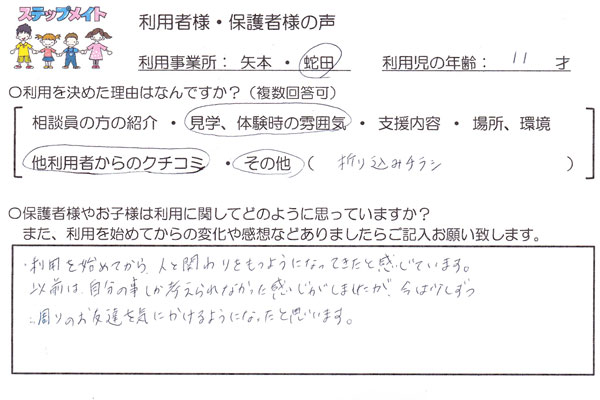 ステップメイト
利用者様・保護者様の声
利用事業所： 矢本 ・ 蛇田 利用児の年齢： 11 才
○利用を決めた理由はなんですか？（複数回答可）
相談員の方の紹介 ・ 見学、体験時の雰囲気 ・ 支援内容 ・ 場所、環境
他利用者からのクチコミ ・ その他（ 折り込みチラシ ）
○保護者様やお子様は利用に関してどのように思っていますか？
また、利用を始めてからの変化や感想などありましたらご記入お願い致します。
・利用を始めてから、人と関わりをもつようになってきたと感じています。
以前は、自分の事しか考えられなかった感じがしましたが、今は少しずつ
周りのお友達を気にかけるようになったと思います。